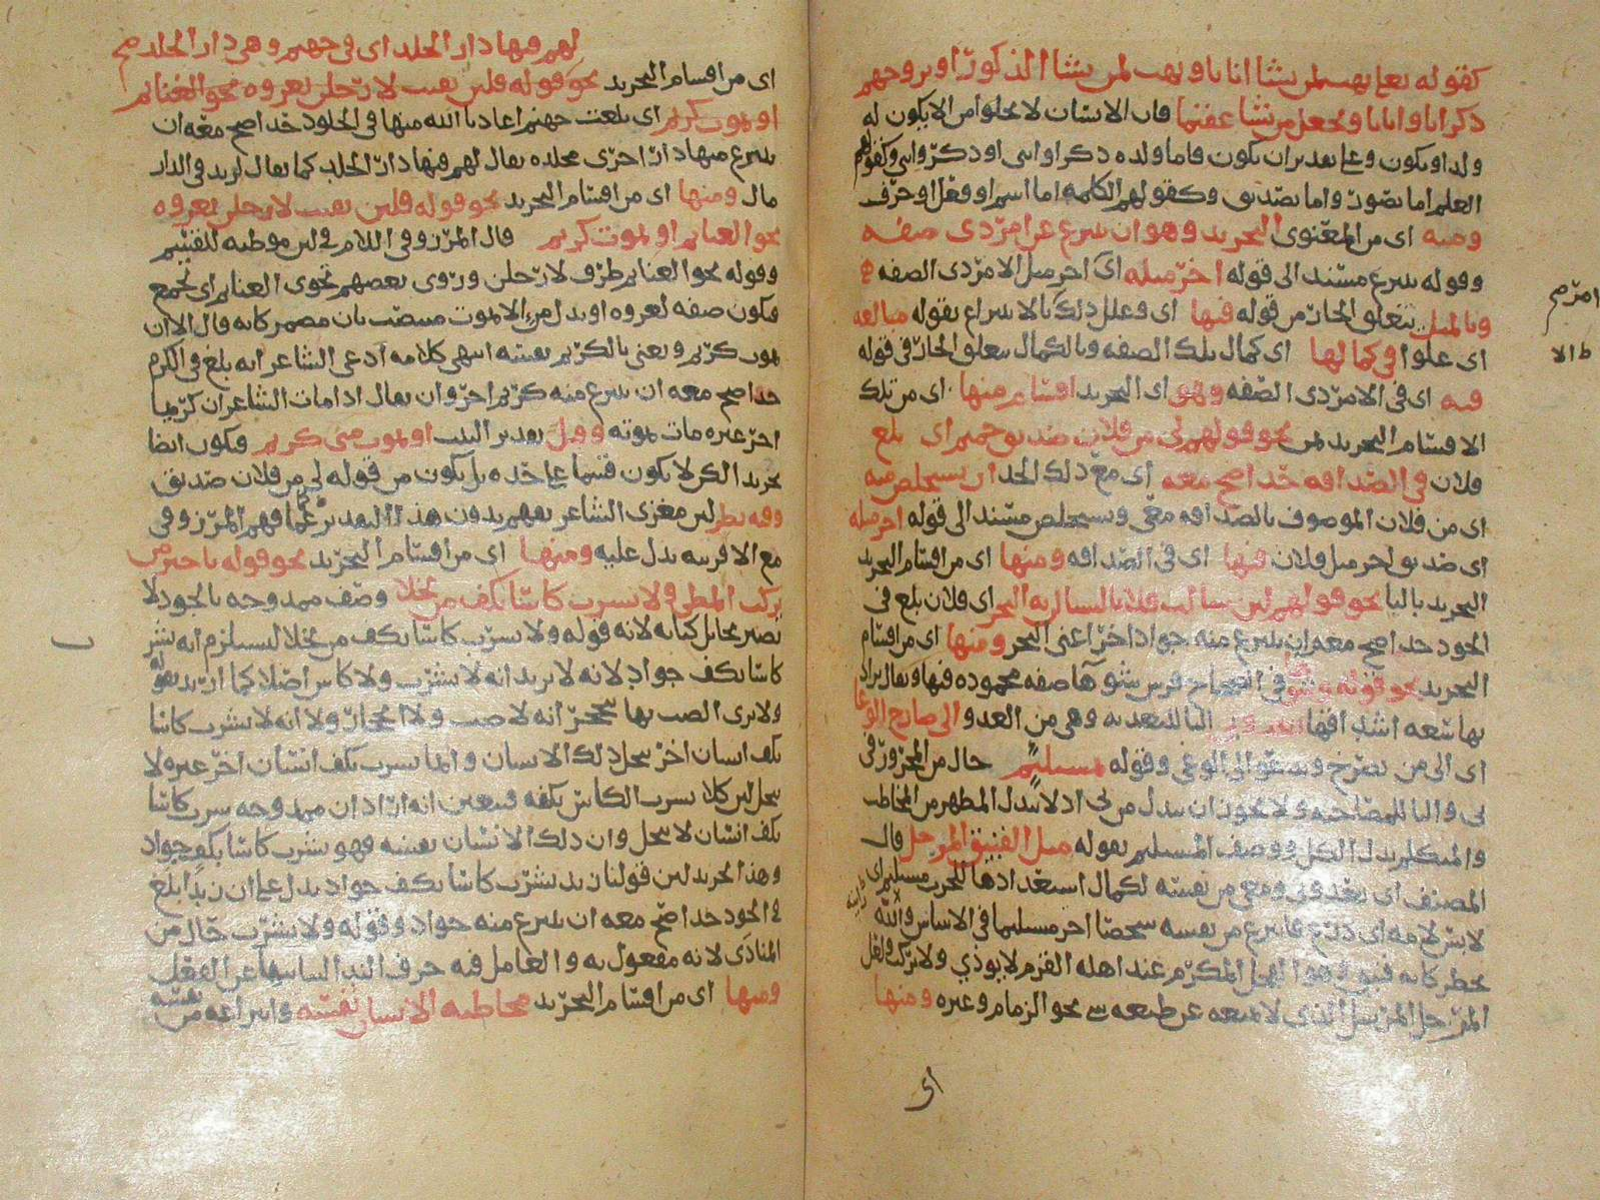 كقوله تعالى يهب لمن يشا اناثا ويهب لمن يشا الذكور او يزوجهم
ذكرانا واناثا ويجعل من يشا عقيما فان الانسان لا يخلوا من الا يكون له
ولد او يكون وعلى تقدير ان يكون فاما ولده ذكر او انثى او ذكر وانثى وكقولهم
العلم اما تصور واما تصديق وكقولهم الكلمة اما اسم او فعل او حرف
ومنه اى من المعنوى التجريد وهو ان ينتزع من امر ذى صفه
وقوله ينتزع مسند الى قوله اخر مثله اى اخر مثل الامر ذى الصفه
يتعلق الجار من قوله فيها اى وعلل ذلك بالانتزاع بقوله مبالغه
اى علوا فى كمالها اى كمال تلك الصفه وبالكمال يتعلق الجار فى قوله
فيه اى فى الامر ذى الصفه وهو اى التجريد اقسام منها اى من تلك
الاقسام التجريد بمن نحو قولهم لى من فلان صديق حميم اى بلغ
فلان فى الصداقه حدا صح معه اى مع ذلك الحد ان يستخلص منه
اى من فلان الموصوف بالصداقه معنى ويستخلص مسند الى قوله اخر مثله
اى صديق اخر مثل فلان فيها اى فى الصداقه ومنها اى من اقسام التجريد
التجريد بالبا نحو قولهم لئن سالت فلانا لتسالن به البحر اى فلان بلغ فى
الجود حدا صح معه ان ينتزع منه جوادا اخر اعنى البحر ومنها اى من اقسام
التجريد نحو قوله وشوها فى فرس شوها صفه محموده فيها ويقال يراد
بها سعه اشداقها البا للتعديه وهى من العدو الى صارخ الوغا
اى الى من يصرخ الى الوغى وقوله بمستلئم حال من المجرور فى
بى والبا للمصاحبه ولا يجوز ان يبدل من بى اذ لا يبدل المظهر من المخاطب
والمتكلم بدل الكل ووصف المستلئم بقوله مثل الفنيق المرحل قال
المصنف اى تعدو بى ومعى من نفسه لكمال استعدادها للحرب مستلئم اى
لابس لامه اى درع فانتزع من نفسه شخصا اخر مستلئما فى الاساس
وهو الفحل المكرم عند اهله القرم لا يوذى ولا يركب
المرسل الذى لا يمنعه عن طبعه شى نحو الزمام وغيره ومنها
اى
لهم فيها دار الخلد اى فى جهنم وهى دار الخلد صح
اى من اقسام التجريد نحو قوله فلئن بقيت لارحلن بغزوه نحو الغنايم
او يموت كريم اى بلغت جهنم اعاذنا الله منها فى الخلود حدا صح معه ان
ينتزع منها دار اخرى مخلده يقال لهم فيها دار الخلد كما يقال لزيد فى الدار
مال ومنها اى من اقسام التجريد نحو قوله فلئن بقيت لارحلن بغزوه
نحو الغنايم او يموت كريم قال المرزوقى اللام فى لئن موطيه للقسم
وقوله نحو الغنايم ظرف لارحلن وروى بعضهم تحوى الغنايم اى تجمع
فيكون صفه لغزوه او بدل من الا يموت منصب بان مضمر كانه قال الا ان
يموت كريم ويعنى بالكريم نفسه انتهى كلامه ادعى الشاعر انه بلغ فى الكرم
حدا صح معه ان ينتزع منه كريم اخر وان يقال اذا مات الشاعر ان كريما
اخر غيره مات بموته وقيل تقدير البيت او يموت منى كريم فيكون ايضا
تجريد الكن لا يكون قسما على حده بل يكون من قوله لى من فلان صديق
وفيه نظر لان مغزى الشاعر يفهم بدون هذا التقدير كما فهم المرزوقى
مع الا قرينه تدل عليه ومنها اى من اقسام التجريد نحو قوله يا خير من
يركب المطى ولا يشرب كاسا بكف من بخلا وصف ممدوحه بالجود لا
ولا يشرب كاسا بكف من بخلا يستلزم انه يشر
كاسا بكف جواد لانه لا يريد انه لا يشرب ولا كاس اصلا كما اريد بقوله
ولا ترى الضب بها ينجحر انه لا ضب ولا انجحار ولا انه لا يشرب كاسا
بكف انسان اخر بخل ذلك الانسان وانما يشرب بكف انسان اخر غيره لا
بخل لئن كلا يشرب الكاس بكفه فتعين انه اراد ان ممدوحه يشرب كاسا
بكف انسان لا يبخل وان ذلك الانسان نفسه فهو يشرب كاسا بكف جواد
وهذا تجريد لئن قولنا زيد يشرب كاسا بكف جواد يدل على ان زيدا بلغ
فى الجود حدا صح معه ان ينتزع منه جواد وقوله ولا يشرب حال من
المنادى لانه مفعول به والعامل فيه حرف الندا النايب عن الفعل
ومنها اى من اقسام التجريد مخاطبه الانسان نفسه وانتزاعه من نفسه